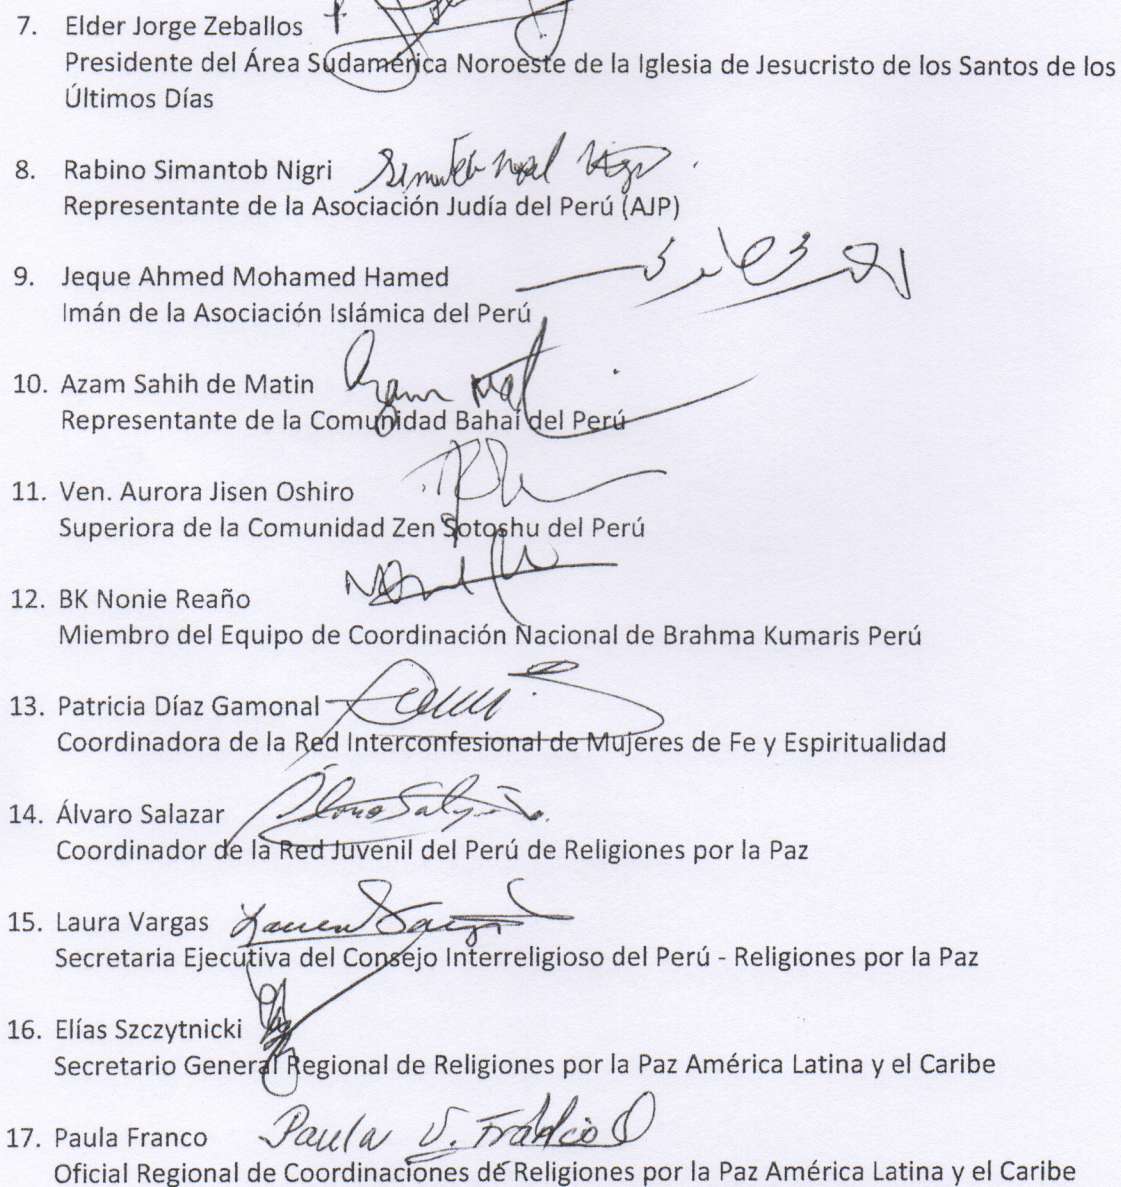 7. Elder Jorge Zeballos
Presidente del Área Sudamérica Noroeste de la Iglesia de Jesucristo de los Santos de los
Últimos Días
8. Rabino Simantob Nigri
Representante de la Asociación Judía del Perú (AJP)
9. Jeque Ahmed Mohamed Hamed
Imán de la Asociación Islámica del Perú
10. Azam Sahih de Matin
Representante de la Comunidad Bahaí del Perú
11. Ven. Aurora Jisen Oshiro
Superiora de la Comunidad Zen Sotoshu del Perú
12. BK Nonie Reaño
Miembro del Equipo de Coordinación Nacional de Brahma Kumaris Perú
13. Patricia Díaz Gamonal
Coordinadora de la Red Interconfesional de Mujeres de Fe y Espiritualidad
14. Álvaro Salazar
Coordinador de la Red Juvenil del Perú de Religiones por la Paz
15. Laura Vargas
Secretaria Ejecutiva del Consejo Interreligioso del Perú - Religiones por la Paz
16. Elías Szczytnicki
Secretario General Regional de Religiones por la Paz América Latina y el Caribe
17. Paula Franco Paula V. Franco
Oficial Regional de Coordinaciones de Religiones por la Paz América Latina y el Caribe